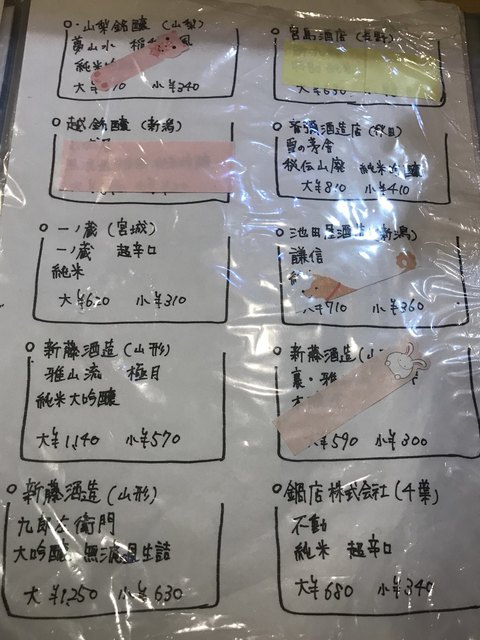 山梨銘醸（山梨）
夢山水
純米
大 10 小¥340
越銘醸（新潟）
一ノ蔵（宮城）
一ノ蔵 超辛口
純米
大¥620 小¥310
新藤酒造（山形）
雅山流 極月
純米大吟醸
大¥1,140 小¥570
新藤酒造（山形）
九郎左衛門
大吟醸 無濾過生詰
大¥1,250 小¥630
宮島酒店（長野）
大¥690
酒造店（秋田）
夏の茅舎
秘伝山廃 純米吟醸
大¥810 小¥410
池田屋酒造（新潟）
謙信
大¥710 小¥360
新藤酒造（山
裏・雅
大¥590 小¥300
鍋店株式会社（千葉）
不動
純米 超辛口
大¥680 小¥340